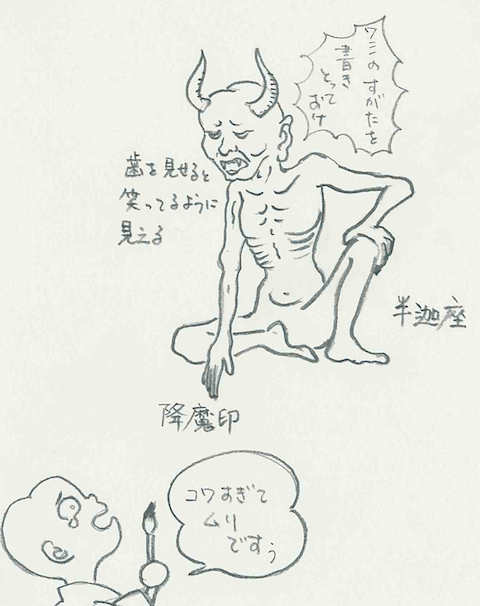 ワシのすがたを
書き
とって
おけ
歯を見せると
笑ってるように
見える
半迦座
降魔印
コワすぎて
ムリ
ですぅ